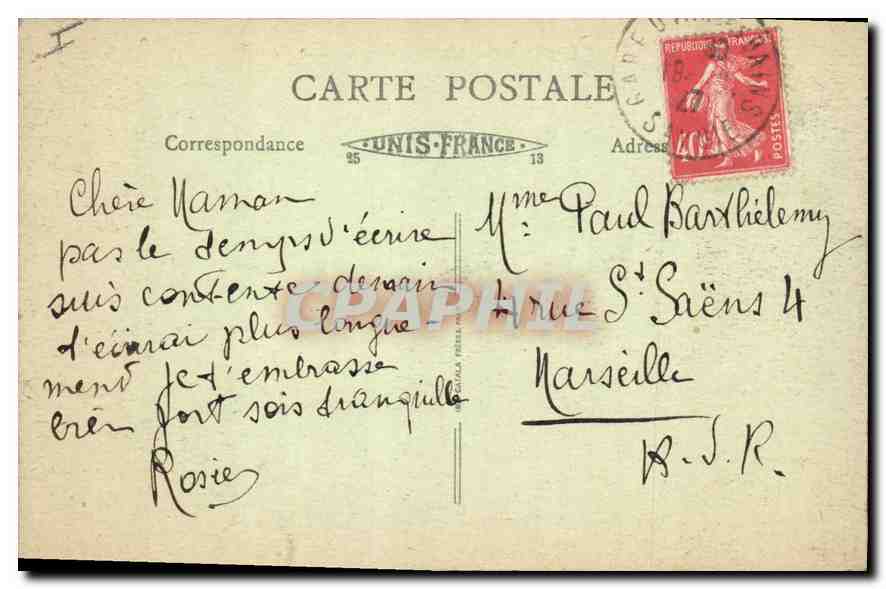 CARTE POSTALE
Correspondance
UNIS-FRANCE
25 13
REPUBLIQUE FRANÇAISE
40
POSTES
27
Chère Maman
pas le temps d'écrire
suis contente, demain
t'écrirai plus longue-
ment Je t'embrasse
bien fort sois tranquille
Rosie
CATALA FRÈRES
Mme Paul Barthélemy
4 rue St Saëns 4
Marseille
CPAPHIL